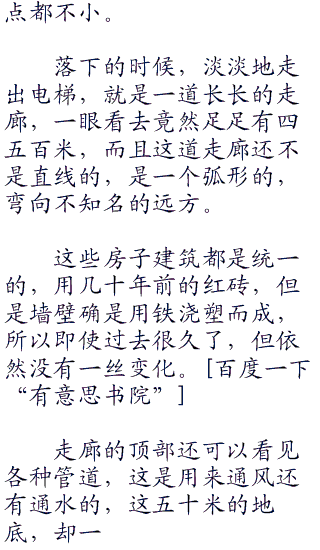 点都不小。
落下的时候，淡淡地走
出电梯，就是一道长长的走
廊，一眼看去竟然足足有四
五百米，而且这道走廊还不
是直线的，是一个弧形的，
弯向不知名的远方。
这些房子建筑都是统一
的，用几十年前的红砖，但
是墙壁确是用铁浇塑而成，
所以即使过去很久了，但依
然没有一丝变化。[百度一下
“有意思书院”]
走廊的顶部还可以看见
各种管道，这是用来通风还
有通水的，这五十米的地
底，却一